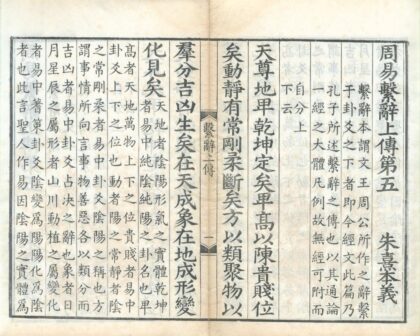 周易繫辭上傳第五
朱熹本義
繫辭本謂文王周公所作之辭繫
于卦爻之下者即今經文此篇乃
孔子所述繫辭之傳也以其通論
一經之大體凡例故無經可附而
自分上
下云
天尊地卑乾坤定矣卑高以陳貴賤位
矣動靜有常剛柔斷矣方以類聚物以
繫辭上傳
一
羣分吉凶生矣在天成象在地成形變
化見矣
天地者陰陽形氣之實體乾坤
者易中純陰純陽之卦名也卑
高者天地萬物上下之位貴賤者易中
卦爻上下之位也動者陽之常靜者陰
之常剛柔者易中卦爻陰陽之稱也方
謂事情所向言事物善惡各以類分而
吉凶者易中卦爻占決之辭也象者日
月星辰之屬形者山川動植之屬變化
者易中蓍策卦爻陰變爲陽陽化爲陰
者也此言聖人作易因陰陽之實體爲